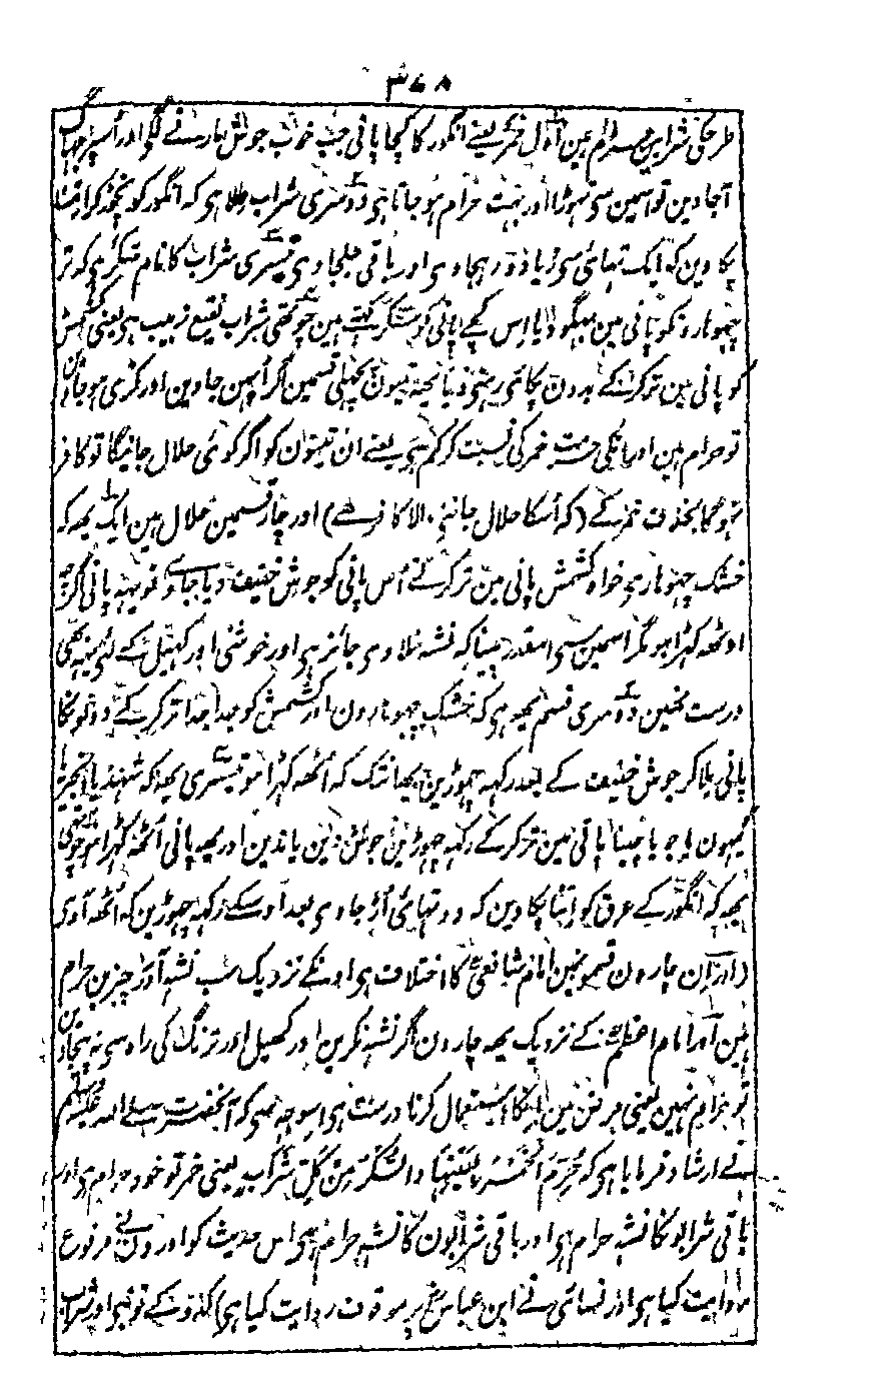 ۳۷۸
طرحکی شرابین حرام ہین اوّل خمر یعنے انگور کا کچا پانی جب خوب جوش مارنے لگے اور اسپر جہاگ
آجاوین تو اسمین سی تہوڑا اور بہت حرام ہو جاتا ہی دوسری شراب طلا ہی کہ انگور کو نچوڑ کر اتنا
پکاوین کہ ایک تہائی سی زیادہ رہجاوی اور باقی جلجاوی تیسری شراب کا نام سکر ہی کہ تر
چہوہارہ کو پانی مین بہگو دیا اِس کچے پانی کو سکر کہتے ہین چوتھی شراب نقیع زبیب ہی یعنی کشمش
کو پانی مین تر کرنیکے بدون پکائی رہنی دیا یہ تینون پچہلی قسمین اگر اُپہن جاوین اور کڑی ہوجاوین
تو حرام ہین اور انکی حرمت خمر کی نسبت کر کم ہی یعنے ان تینون کو اگر کوئی حلال جانیگا تو کافر
نہوگا بخلاف خمر کے (کہ اُسکا حلال جاننے والا کافر ہے) اور چار قسمین حلال ہین ایک یہہ کہ
خشک چہوہاری خواہ کشمش پانی مین تر کرکے اُس پانی کو جوش خفیف دیا جاوے تو یہہ پانی اگرچہ
اوٹھہ کہڑا ہو مگر اسمین سی اسقدر پینا کہ نشہ نلاوی جائز ہی اور خوشی اور کہیل کے لئی پینا بھی
درست نہین دوسری قسم یہہ ہی کہ خشک چہوہارون اور کشمش کو جدا جدا تر کرکے دونو نکا
پانی ملا کر جوش خفیف کے بعد رکہہ چہوڑین یہانتک کہ اُٹھہ کہڑا ہو تیسری یہہ کہ شہد یا انجیر یا
گیہون یا جو یا چینا پانی مین تر کرکے رکہہ چہوڑین جوش دین یا ندین اور یہہ پانی اُٹھہ کہڑا ہو چوتھی
یہہ کہ انگور کے عرق کو اِتنا پکاوین کہ دو تہائی اُڑ جاوی بعد اوسکے رکہہ چہوڑین کہ اُٹھہ آوی
اور اِن چارون قسمونمین امام شافعیؒ کا اختلاف ہی اونکے نزدیک سب نشہ آور چیزین حرام
ہین اور امام اعظمؒ کے نزدیک یہہ چارون اگر نشہ نکرین اور کھیل اور ترنگ کی راہ سی نہ پیجاوین
تو حرام نہین یعنی مرض مین اِنکا استعمال کرنا درست ہی اسوجہ سی کہ آنحضرت صلے اللہ علیہ وسلم
نے ارشاد فرمایا ہی کہ حُرِّمَ الْخَمْرُ بِعَیْنِہَا وَالسُّکْرُ مِنْ کُلِّ شَرَابٍ یعنی خمر تو خود حرام ہی اور
باقی شرابونکا نشہ حرام ہی اور باقی شرابون کا نشہ حرام ہی اس حدیث کو اورون نے مرفوع
روایت کیا ہی اور نسائی نے ابن عباسؓ پر موقوف روایت کیا ہی) کدو کے تونبی اور شراب